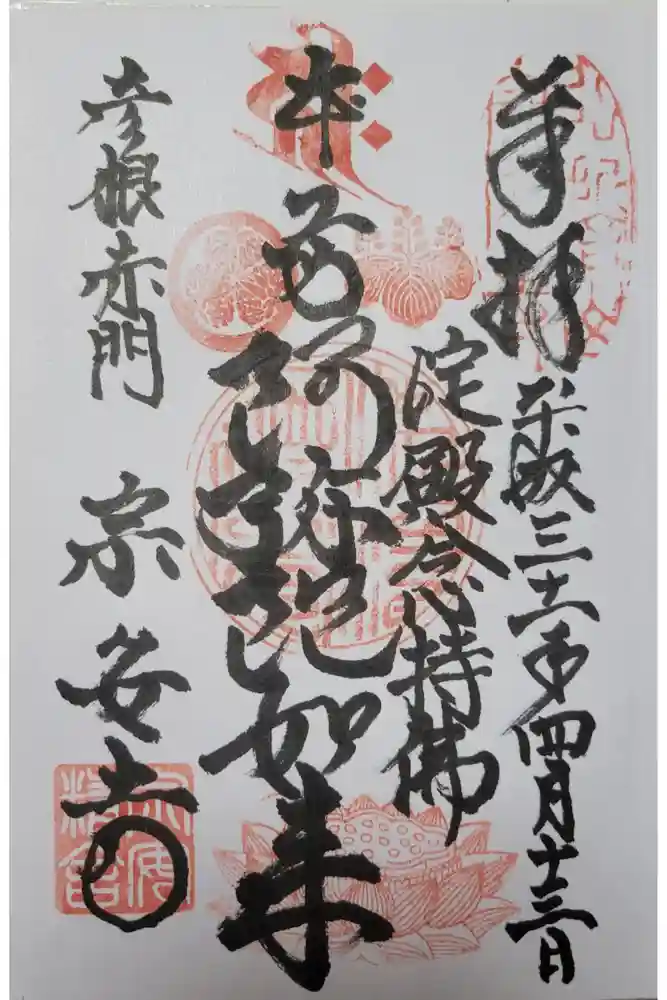 奉拝 平成三十一年四月十三日
淀殿念持佛
本尊阿弥陀如来
彦根赤門 宗安寺